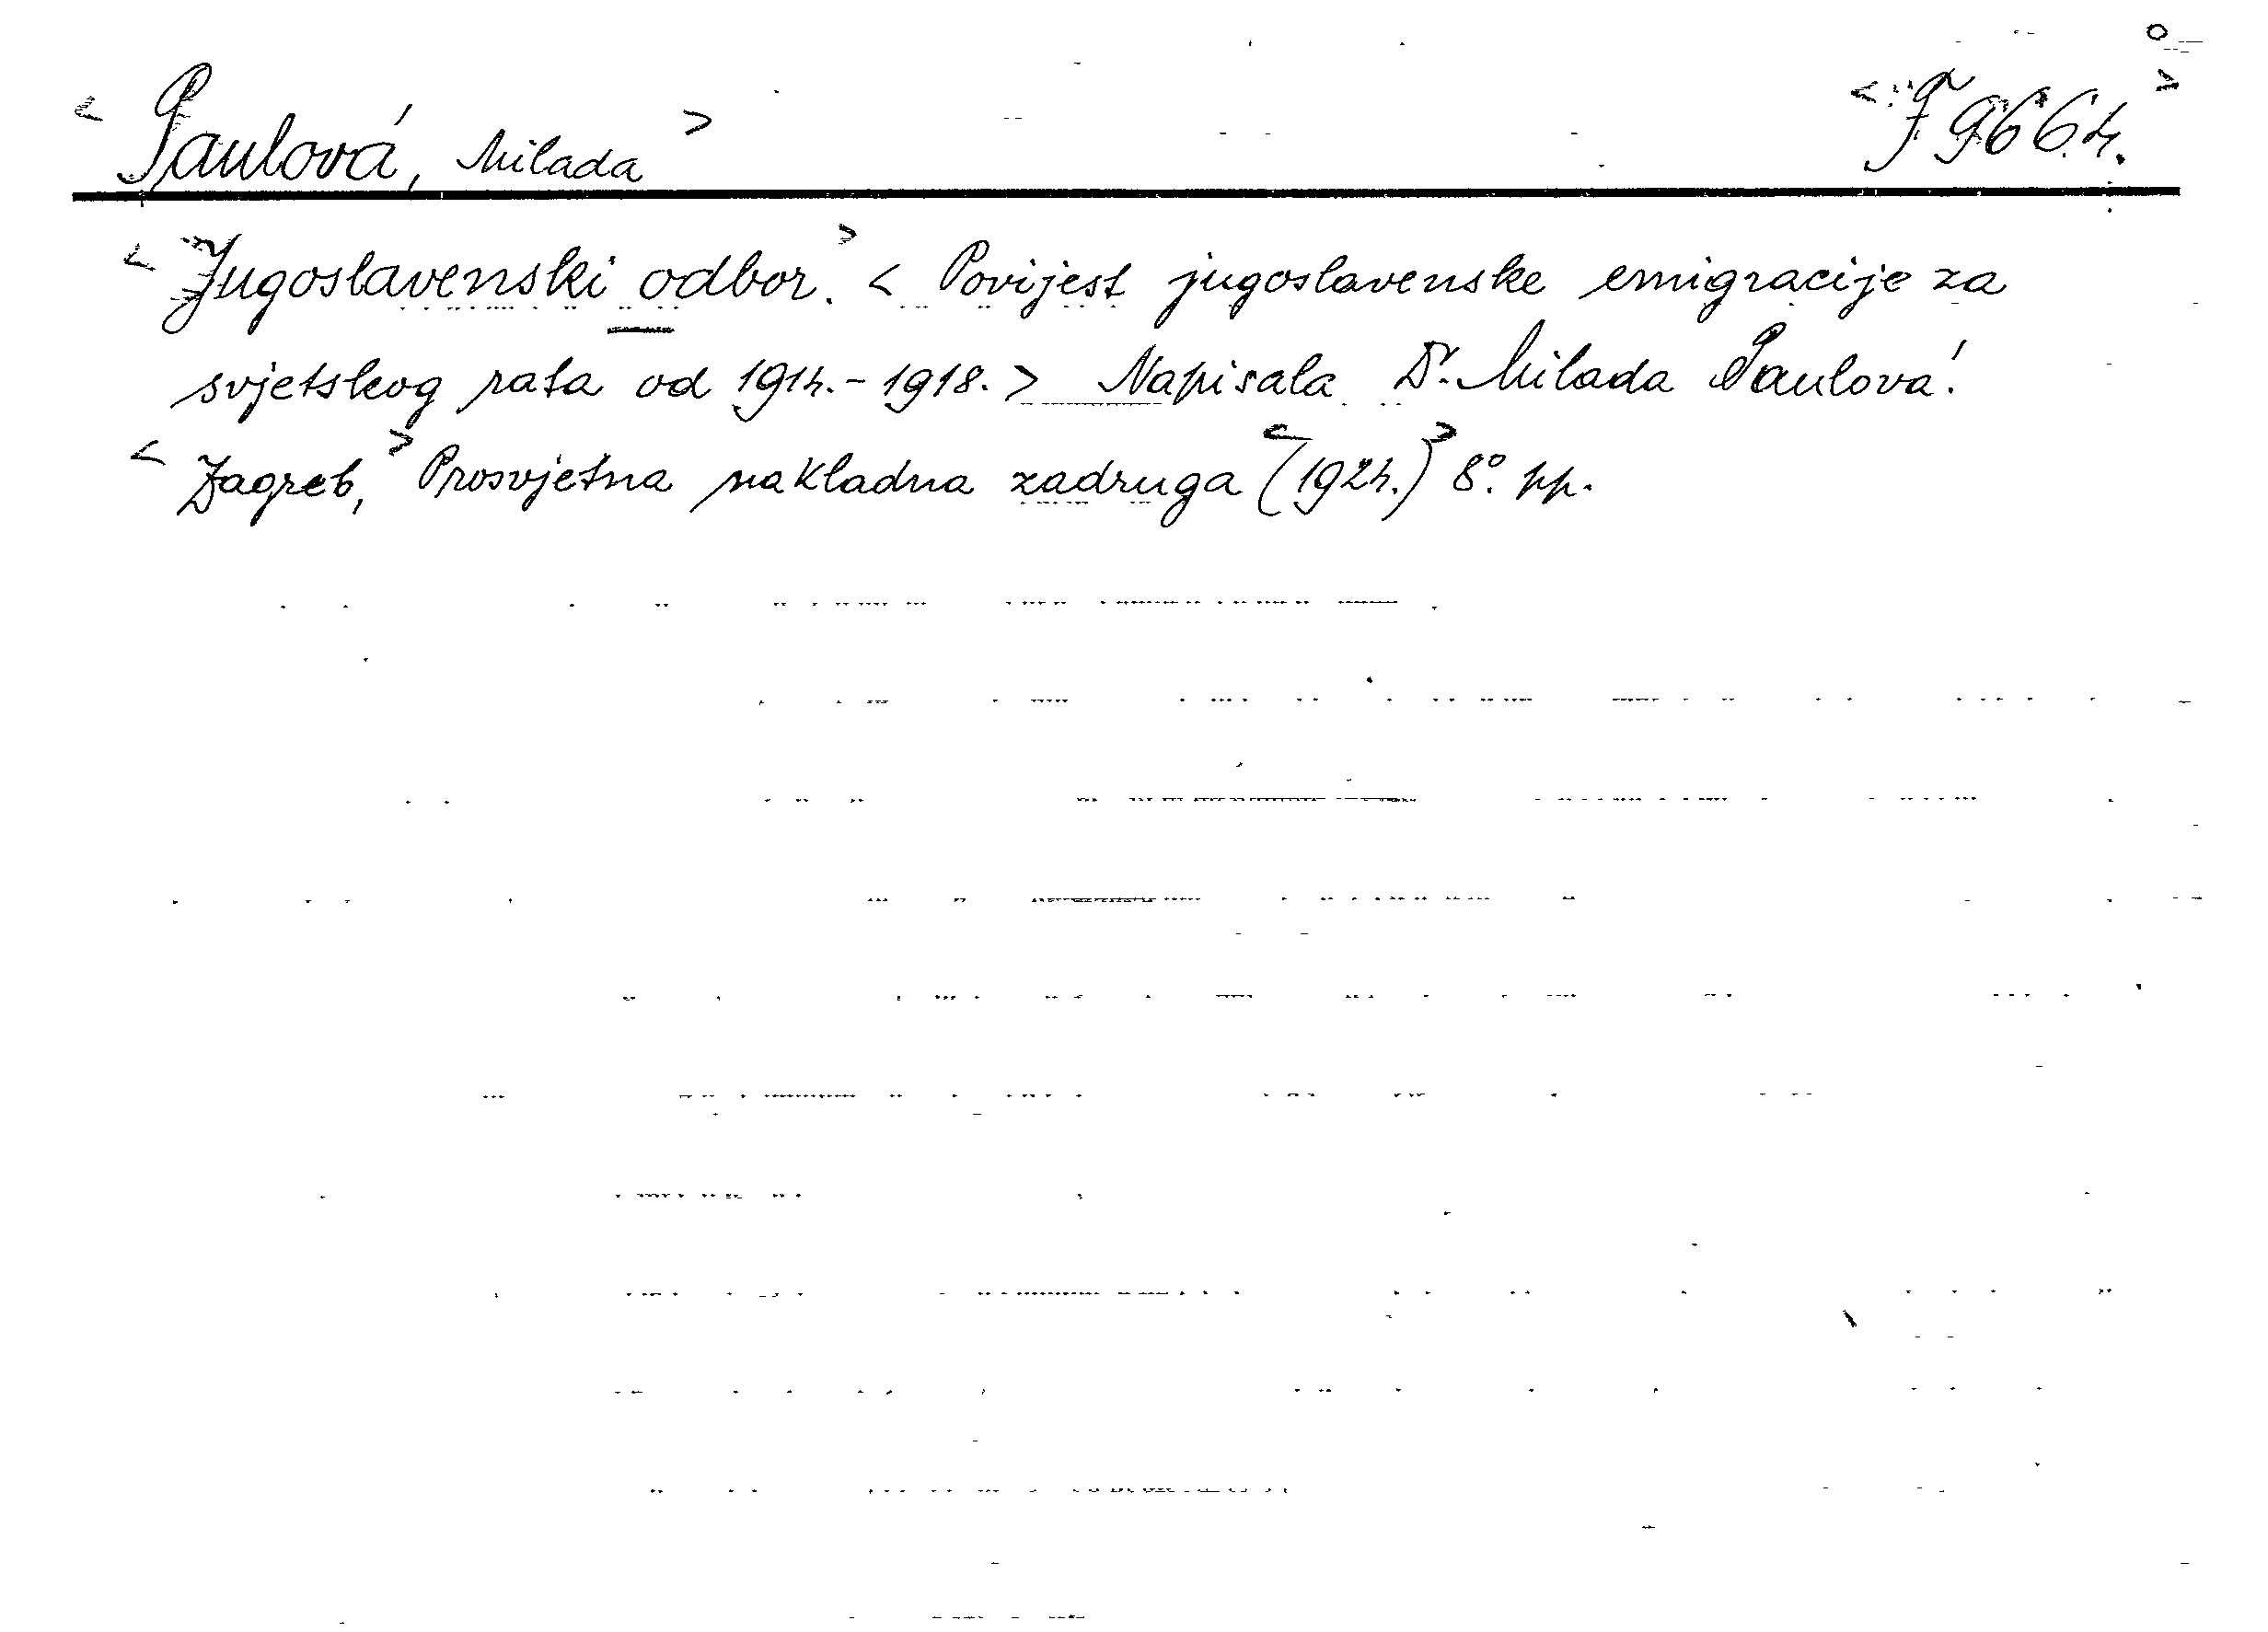 < Paulová, Milada > < F 966.4. >
< Jugoslavenski odbor. > < Povijest jugoslavenske emigracije za
svjetskog rata od 1914.-1918. > Napisala Dr. Milada Paulová.
< Zagreb, > Prosvjetna nakladna zadruga < (1924.) > 8° pp.